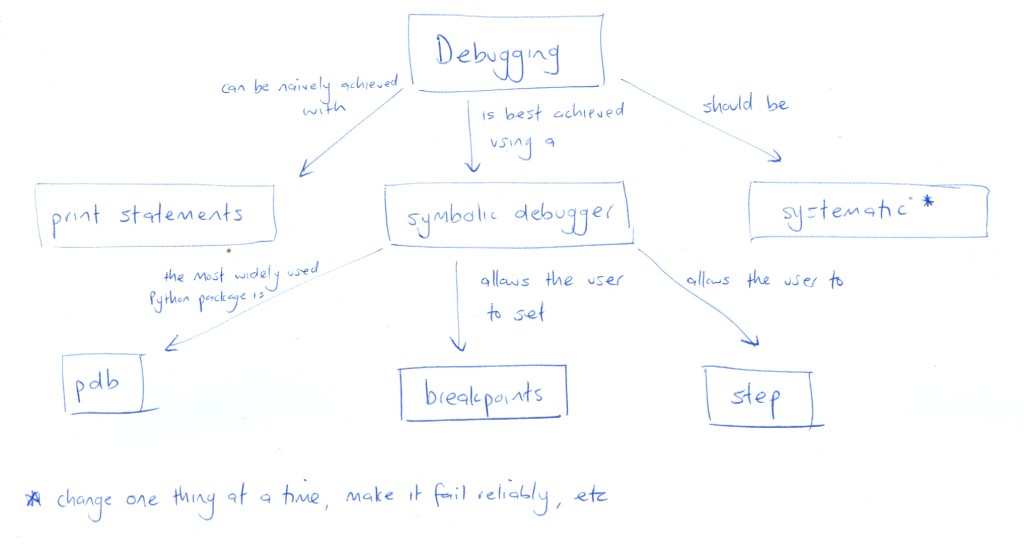 Debugging
can be naively achieved
with
is best achieved
using a
should be
print statements
symbolic debugger
systematic *
the most widely used
Python package is
allows the user
to set
allows the user to
pdb
breakpoints
step
* change one thing at a time, make it fail reliably, etc